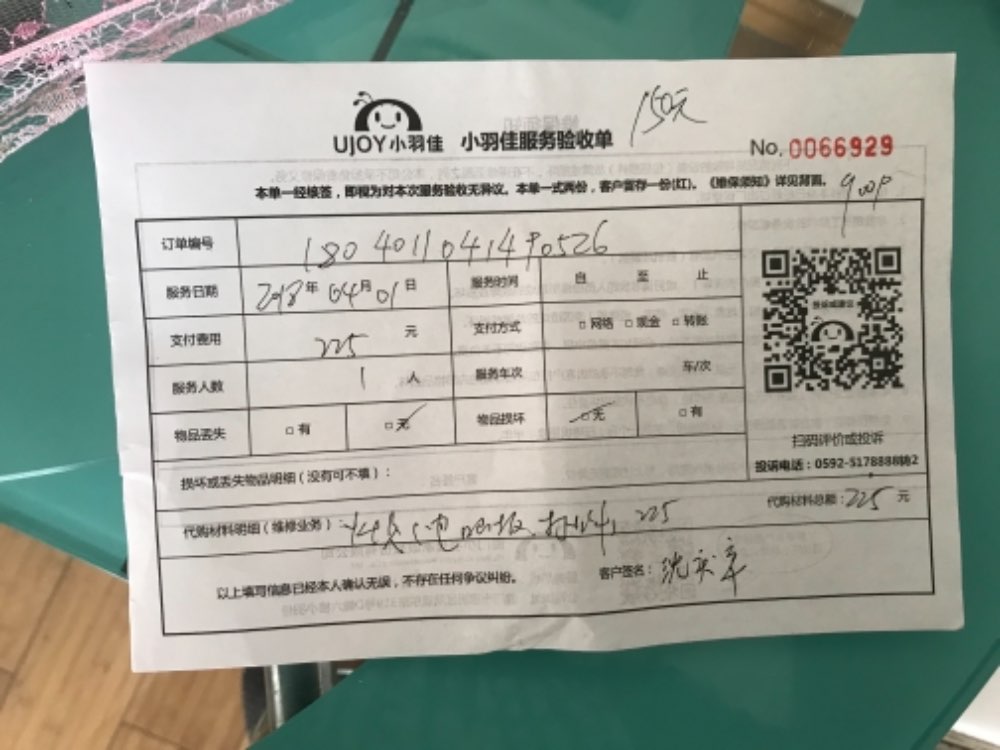 150元
UJOY小羽佳 小羽佳服务验收单
No. 0066929
本单一经核签，即视为对本次服务验收无异议。本单一式两份，客户留存一份(红)。《维保须知》详见背面。
订单编号 1804011041490526
服务日期 2018年04月01日 服务时间 自 至 止
支付费用 225 元 支付方式 □网络 □现金 □转账
服务人数 1 人 服务车次 车/次
物品丢失 □有 □无 物品损坏 □无 □有
投诉或建议
扫码评价或投诉
投诉电话：0592-5178888转2
损坏或丢失物品明细（没有可不填）：
代购材料明细（维修业务） 225 代购材料总额：225 元
以上填写信息已经本人确认无误，不存在任何争议纠纷。 客户签名：